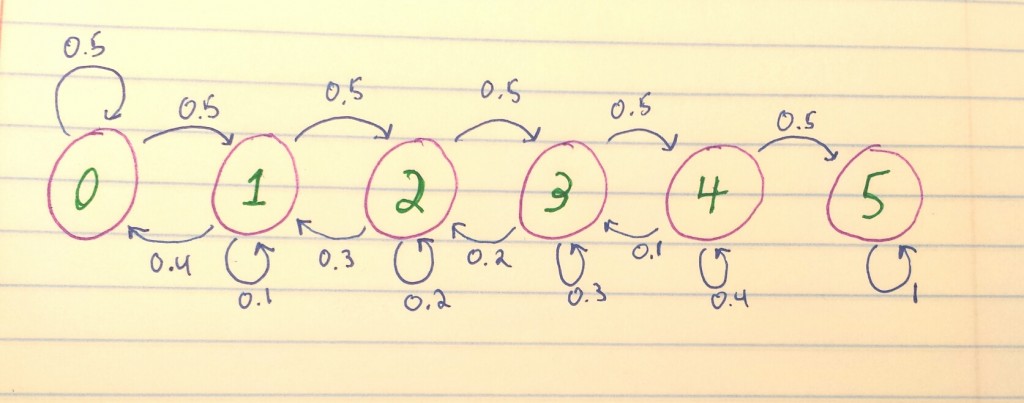 0.5
0.5 0.5 0.5 0.5 0.5
0 1 2 3 4 5
0.4 0.3 0.2 0.1
0.1 0.2 0.3 0.4 1